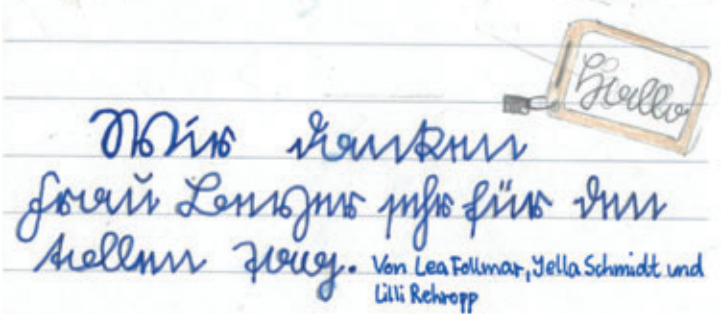 Hallo
Wir danken
Frau Lenzer sehr für den
tollen Tag.
Von Lea Follmar, Yella Schmidt und
Lilli Rehropp